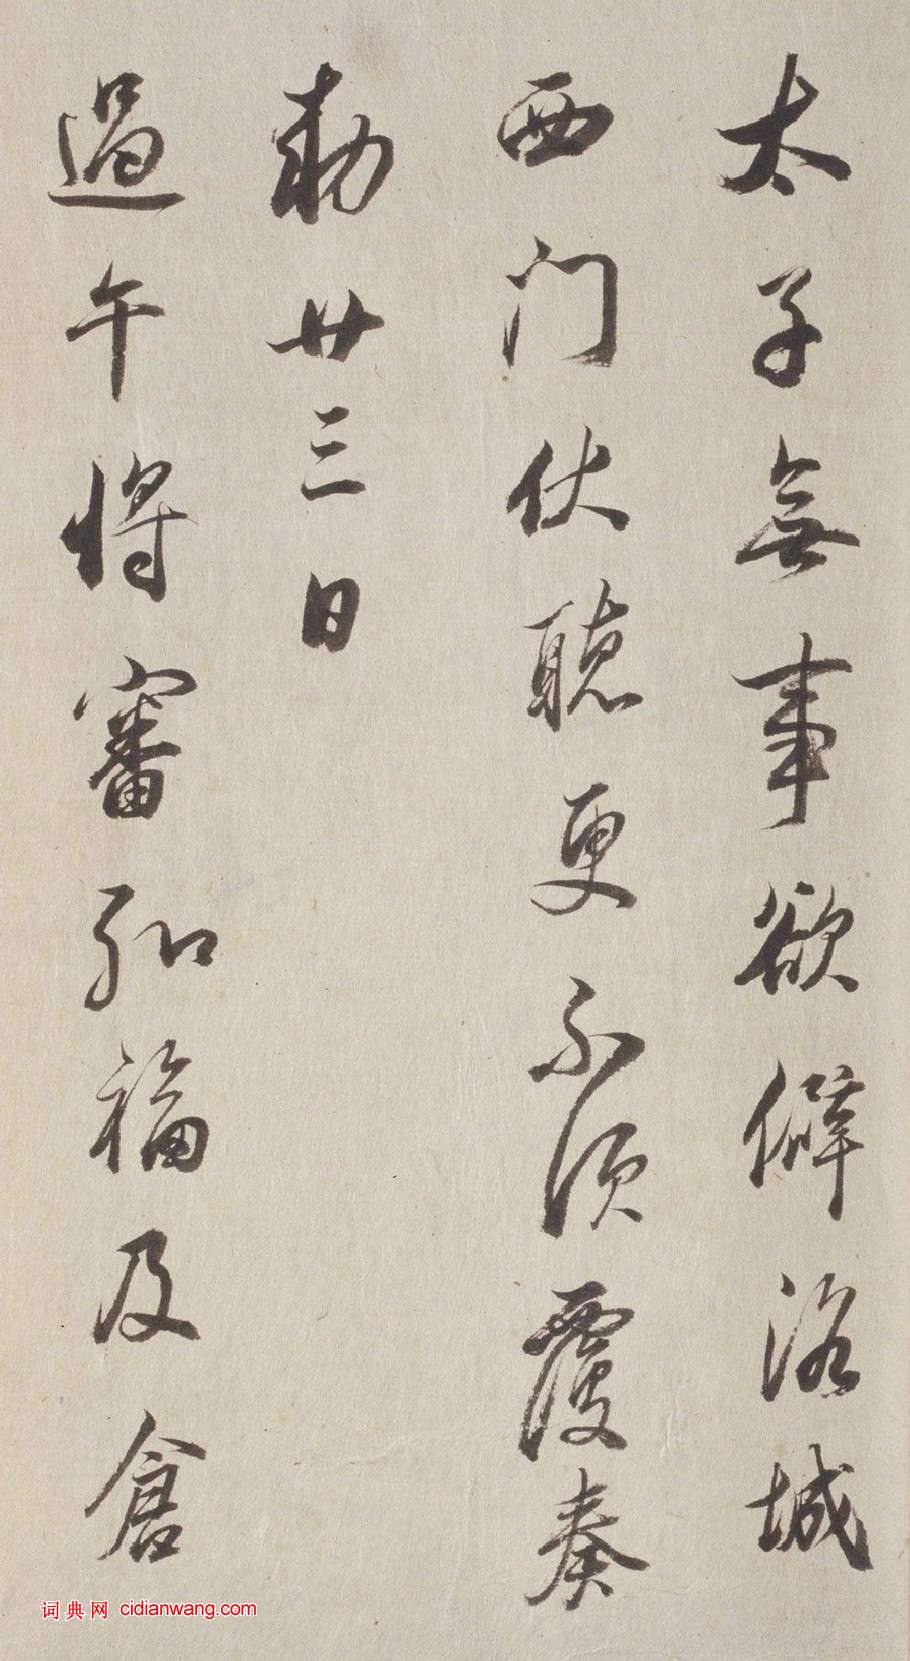 太子無事欲僻洛城
西门伏聽更不須覆奏
勅廿三日
過午将審弘福及倉
词典网 cidianwang.com